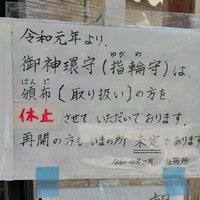 令和元年より、
御神環守(指輪守)は、
頒布(取り扱い)の方を、
休止させていただいております。
再開の方も、いまの所 未定であります
令和四年二月